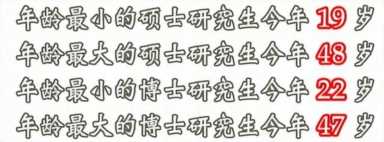 年龄最小的硕士研究生今年19岁
年龄最大的硕士研究生今年48岁
年龄最小的博士研究生今年22岁
年龄最大的博士研究生今年47岁